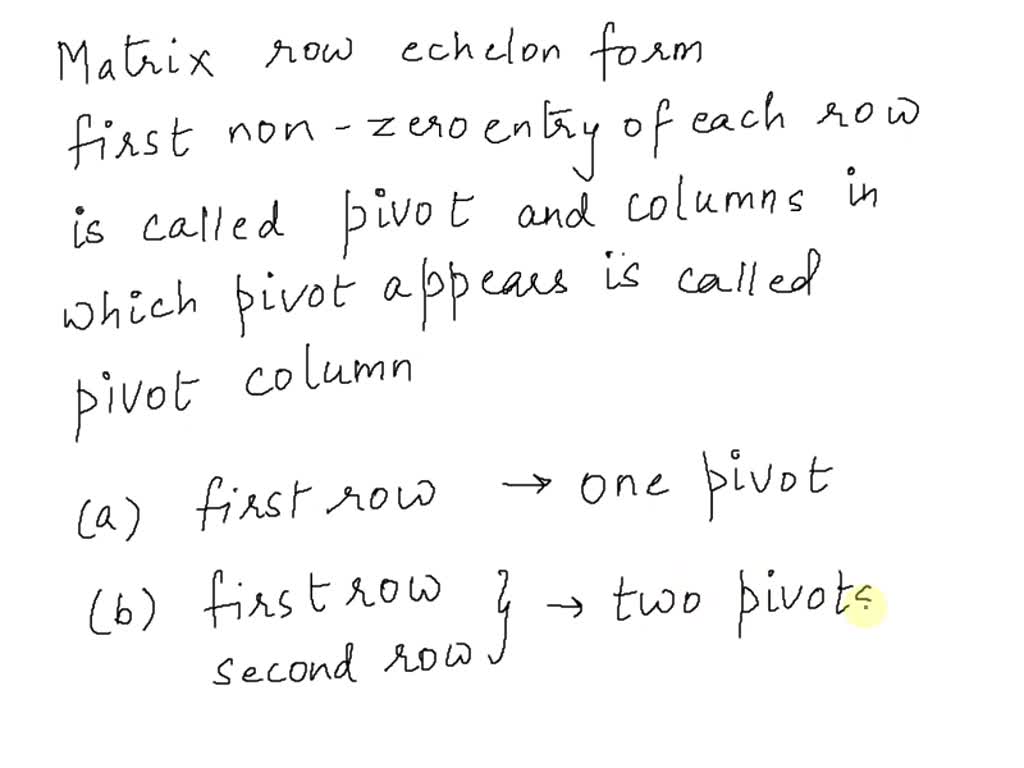 Matrix row echelon form
first non-zero entry of each row
is called pivot and columns in
which pivot appears is called
pivot column
(a) first row → one pivot
(b) first row } → two pivots
second row